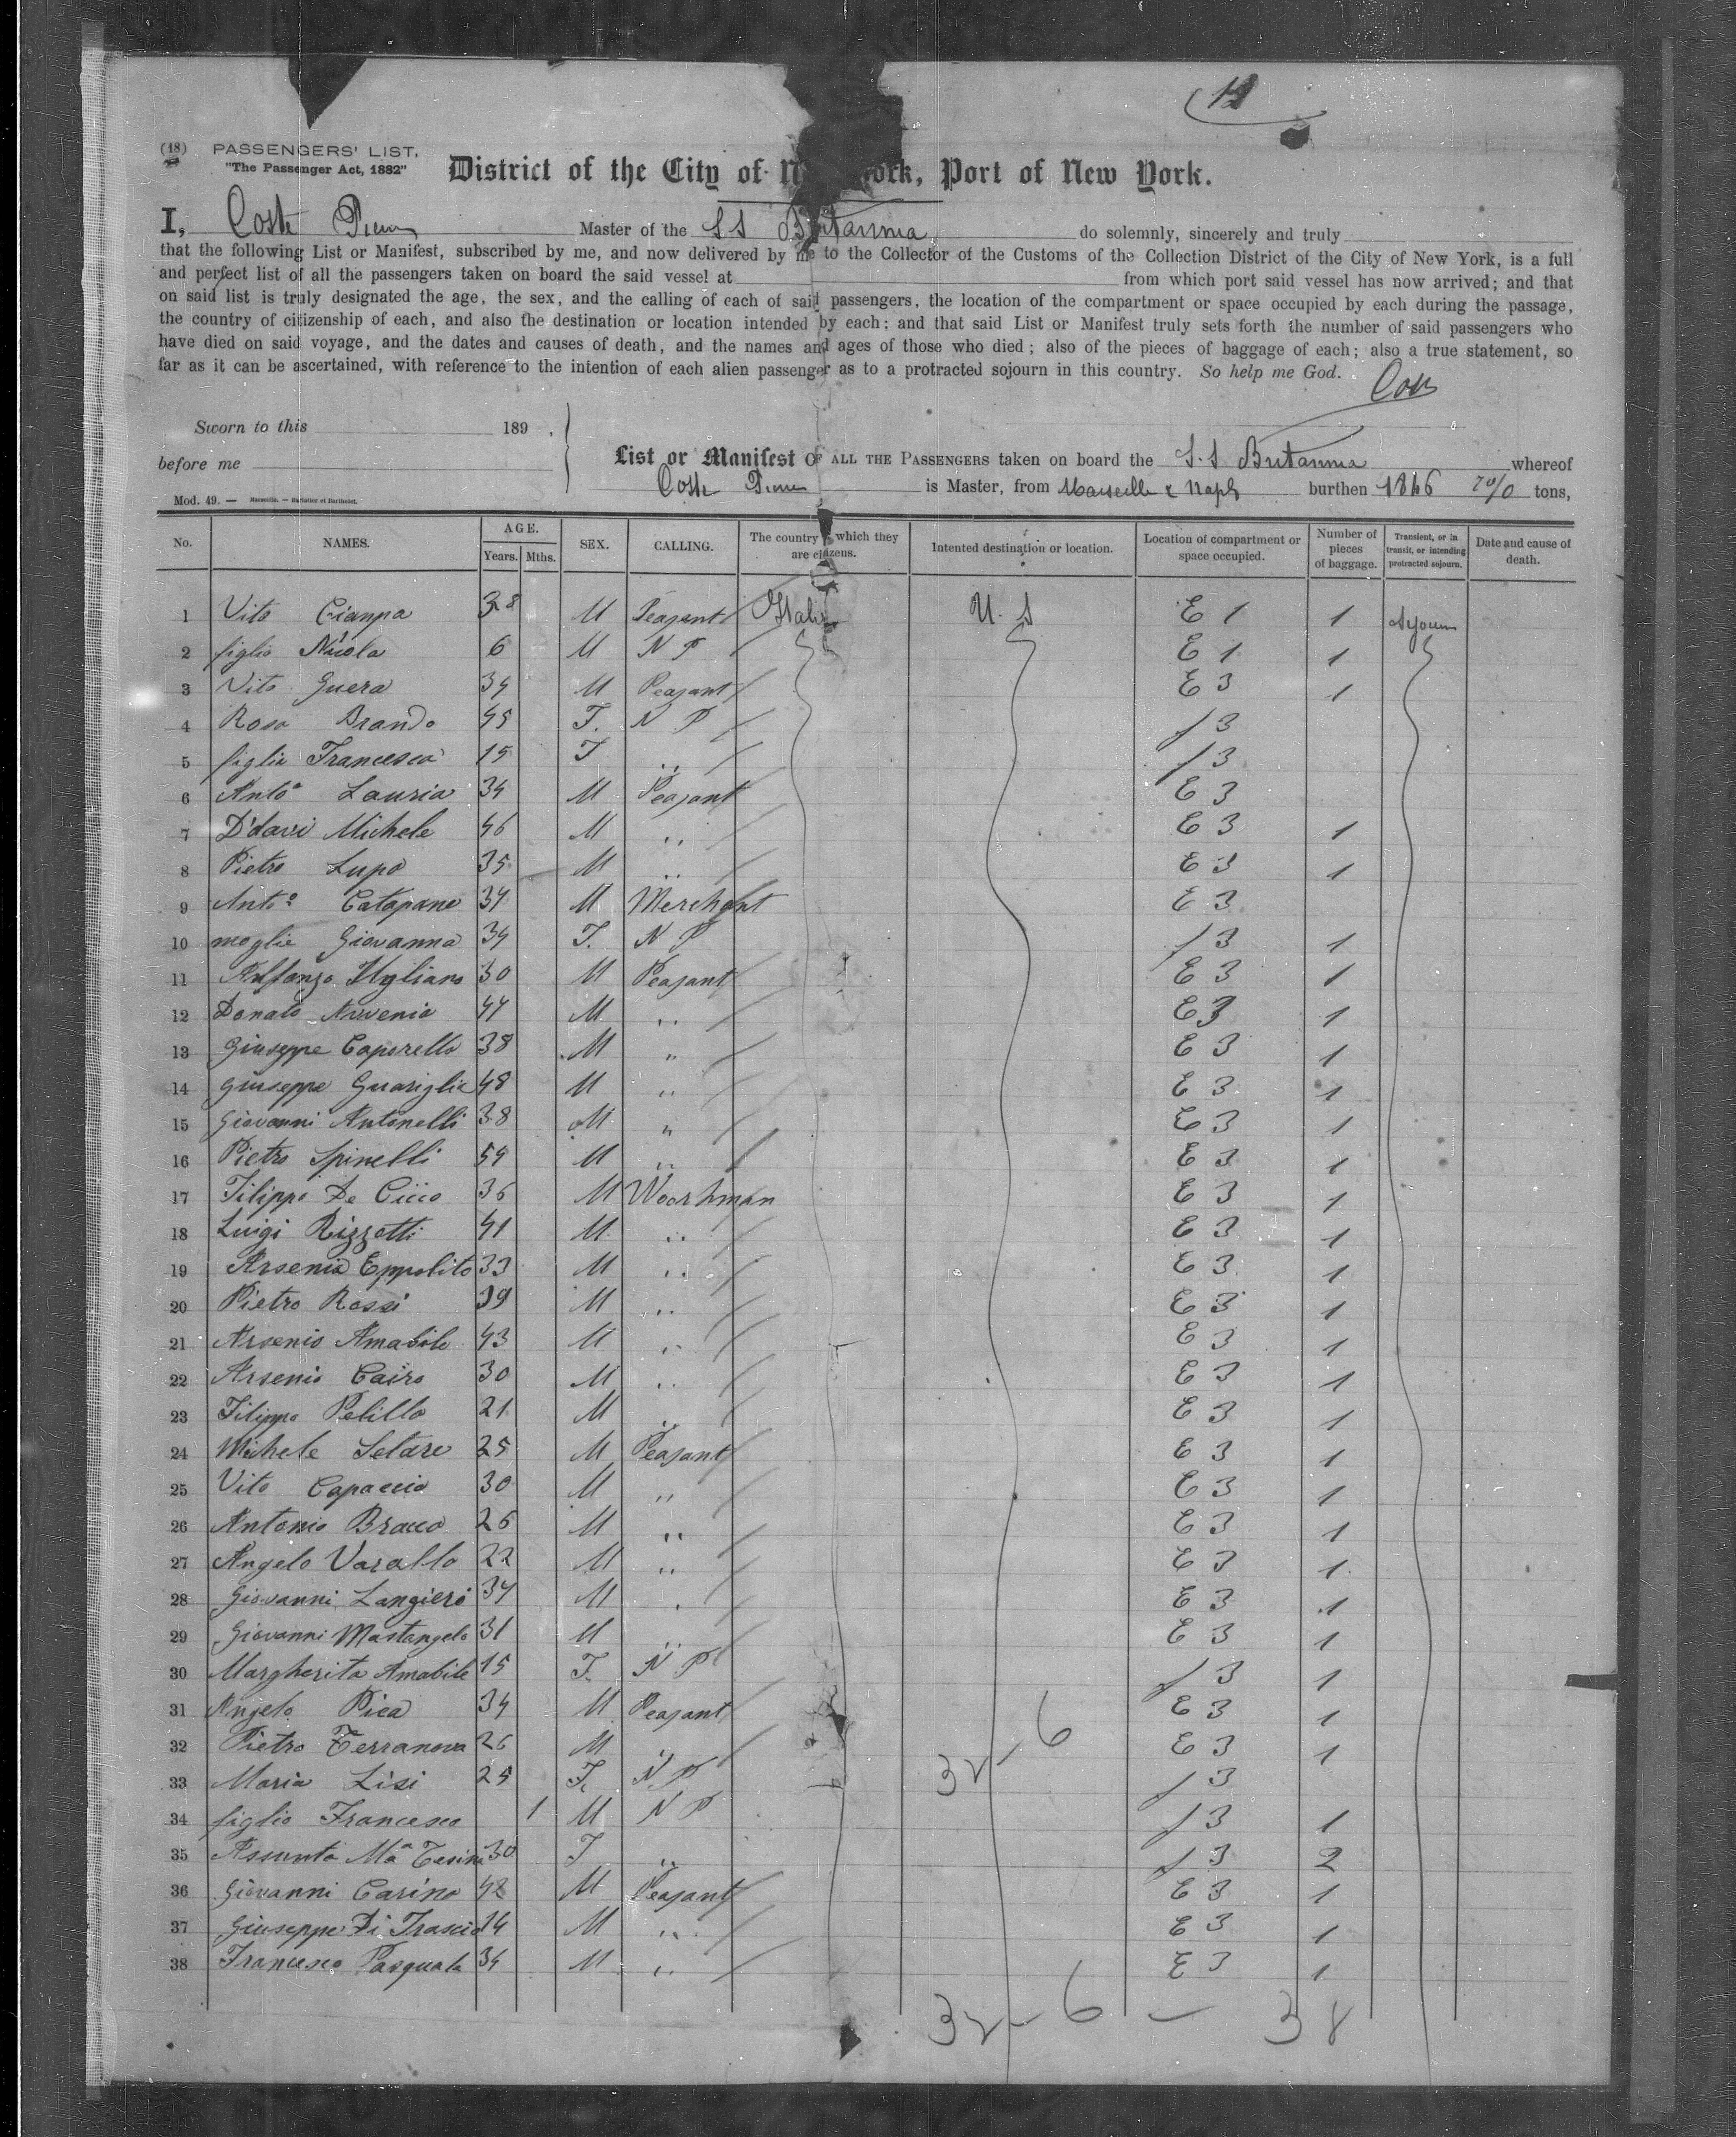 12
(18) PASSENGERS' LIST.
"The Passenger Act, 1882"
District of the City of N ork, Port of New York.
I, Coste Pierre Master of the S S Britannia do solemnly, sincerely and truly
that the following List or Manifest, subscribed by me, and now delivered by me to the Collector of the Customs of the Collection District of the City of New York, is a full
and perfect list of all the passengers taken on board the said vessel at from which port said vessel has now arrived; and that
on said list is truly designated the age, the sex, and the calling of each of said passengers, the location of the compartment or space occupied by each during the passage,
the country of citizenship of each, and also the destination or location intended by each; and that said List or Manifest truly sets forth the number of said passengers who
have died on said voyage, and the dates and causes of death, and the names and ages of those who died; also of the pieces of baggage of each; also a true statement, so
far as it can be ascertained, with reference to the intention of each alien passenger as to a protracted sojourn in this country. So help me God.
Sworn to this 189 ,
before me
List or Manifest OF ALL THE PASSENGERS taken on board the S.S Britannia whereof
Coste Pierre is Master, from Marseille & Naples burthen 1866 70/0 tons,
Mod. 49. — Marseille. — Barlatier et Barthelet.
No. NAMES. AGE. Years. Mths. SEX. CALLING. The country of which they are citizens. Intented destination or location. Location of compartment or space occupied. Number of pieces of baggage. Transient, or in transit, or intending protracted sojourn. Date and cause of death.
1 Vito Cianpa 38 M Peasant Italie U. S E 1 1 Sejourn
2 figlio Nicola 6 M N P E 1 1
3 Vito Guera 34 M Peasant E 3 1
4 Rosa Brando 45 F. N P f 3
5 figlia Francesca 15 F .. f 3
6 Anto Lauria 34 M Peasant E 3
7 Michele 46 M .. E 3 1
8 Pietro Lupo 35 M .. E 3 1
9 Anto Catapano 34 M Merchant E 3
10 moglie Giovanna 34 F. N P f 3 1
11 Alfonzo Ugliano 30 M Peasant E 3 1
12 Donato Arvenia 44 M .. E 3 1
13 Giuseppe Caporello 38 M .. E 3 1
14 Giuseppe Guariglia 48 M .. E 3 1
15 Giovanni Antonelli 38 M .. E 3 1
16 Pietro Spinelli 54 M .. E 3 1
17 Filippo De Cicco 36 M Woorkman E 3 1
18 Luigi Rizzotti 41 M .. E 3 1
19 Arsenio Eppolito 33 M .. E 3 1
20 Pietro Rossi 39 M .. E 3 1
21 Arsenio Amabile 43 M .. E 3 1
22 Arsenio Cairo 30 M .. E 3 1
23 Filippo Pelillo 21 M .. E 3 1
24 Michele Setaro 25 M Peasant E 3 1
25 Vito Capaccio 30 M .. E 3 1
26 Antonio Bracco 26 M .. E 3 1
27 Angelo Varallo 22 M .. E 3 1
28 Giovanni Langieri 34 M .. E 3 1
29 Giovanni Mastangelo 31 M .. E 3 1
30 Margherita Amabile 15 F. N P f 3 1
31 Angelo Pica 34 M Peasant E 3 1
32 Pietro Terranova 26 M .. 32 - 6 E 3 1
33 Maria Lisi 25 F. N P f 3
34 figlio Francesco 1 M N P f 3 1
35 Assunta Ma 30 F .. f 3 2
36 Giovanni Carino 42 M Peasant E 3 1
37 Giuseppe Di 14 M .. E 3 1
38 Francesco Pasquale 34 M .. E 3 1
32 - 6 - 38